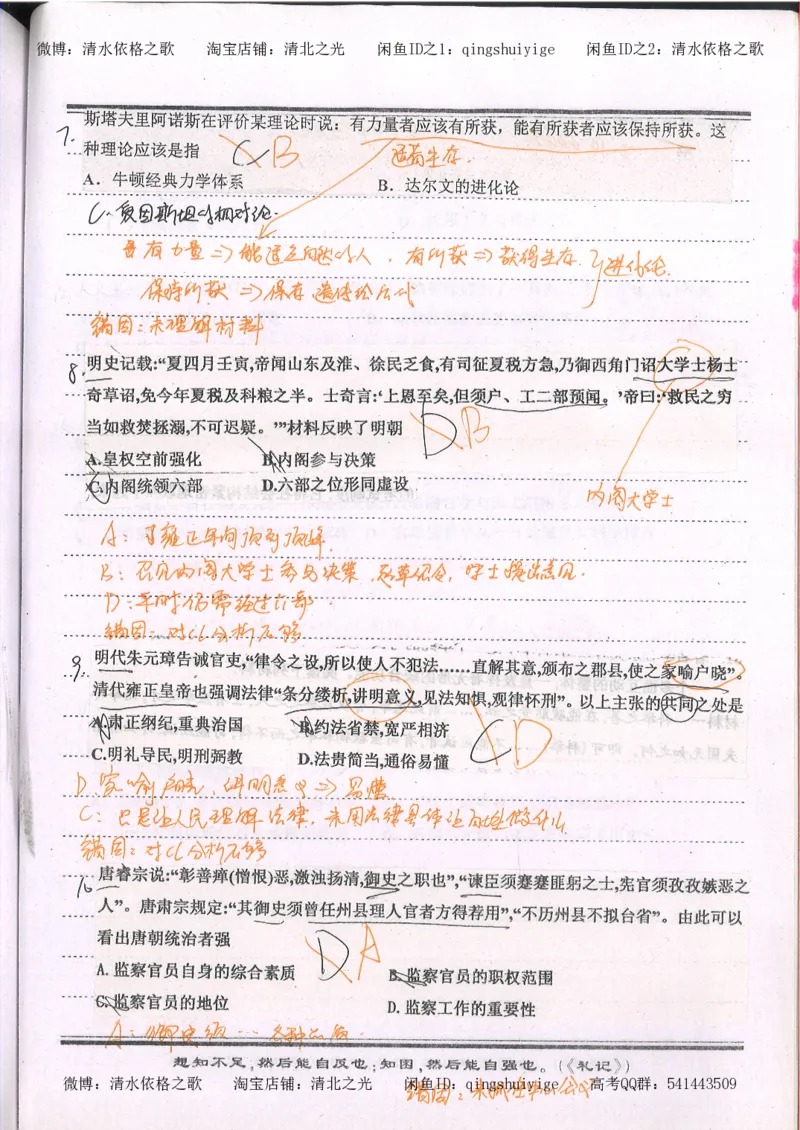 微博：清水依格之歌　淘宝店铺：清北之光　闲鱼ID之1：qingshuiyige　闲鱼ID之2：清水依格之歌
7.
斯塔夫里阿诺斯在评价某理论时说：有力量者应该有所获，能有所获者应该保持所获。这
种理论应该是指 C B 适者生存.
A．牛顿经典力学体系 B．达尔文的进化论
C.爱因斯坦的相对论.
有力量⇒能适之 人，有所获⇒获得生存. 进化论.
保持所获⇒保存遗传给后代
错因：未理解材料
8.
明史记载:“夏四月壬寅,帝闻山东及淮、徐民乏食,有司征夏税方急,乃御西角门诏大学士杨士
奇草诏,免今年夏税及科粮之半。士奇言:‘上恩至矣,但须户、工二部预闻。’帝曰:‘救民之穷
当如救焚拯溺,不可迟疑。’”材料反映了明朝 D B
A.皇权空前强化 B.内阁参与决策
C.内阁统领六部 D.六部之位形同虚设
内阁大学士
A：到雍正年间 到顶峰.
B：内阁大学士参与决策，学士提出意见.
D：平时仍需经过六部
错因：对CL分析不够
9.
明代朱元璋告诫官吏,“律令之设,所以使人不犯法……直解其意,颁布之郡县,使之家喻户晓”。
清代雍正皇帝也强调法律“条分缕析,讲明意义,见法知惧,观律怀刑”。以上主张的共同之处是
A.肃正纲纪,重典治国 B.约法省禁,宽严相济
C D
C.明礼导民,明刑弼教 D.法贵简当,通俗易懂
D：家喻户晓、讲明意义⇒易懂
C：只是让人民理解法律，未用法律具体让百姓做什么
错因：对CL分析不够
10
唐睿宗说:“彰善瘅(憎恨)恶,激浊扬清,御史之职也”,“谏臣须蹇蹇匪躬之士,宪官须孜孜嫉恶之
人”。唐肃宗规定:“其御史须曾任州县理人官者方得荐用”,“不历州县不拟台省”。由此可以
看出唐朝统治者强 D A
A. 监察官员自身的综合素质 B.监察官员的职权范围
C.监察官员的地位 D. 监察工作的重要性
A：御史须…各种
想知不足,然后能自反也；知困,然后能自强也。(《礼记》)
微博：清水依格之歌　淘宝店铺：清北之光　闲鱼ID：qingshuiyige　高考QQ群：541443509
错因：